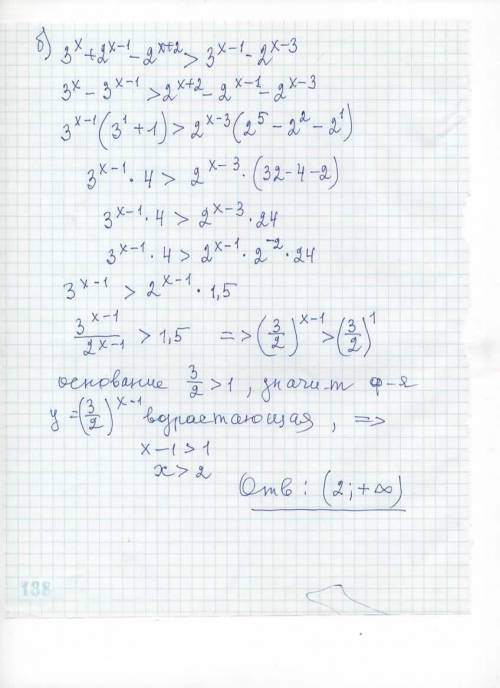 б) 3^x + 2^{x-1} - 2^{x+2} > 3^{x-1} - 2^{x-3}
3^x - 3^{x-1} > 2^{x+2} - 2^{x-1} - 2^{x-3}
3^{x-1} (3^1 + 1) > 2^{x-3} (2^5 - 2^2 - 2^1)
3^{x-1} · 4 > 2^{x-3} · (32 - 4 - 2)
3^{x-1} · 4 > 2^{x-3} · 24
3^{x-1} · 4 > 2^{x-1} · 2^{-2} · 24
3^{x-1} > 2^{x-1} · 1,5
3^{x-1}/2^{x-1} > 1,5 => (3/2)^{x-1} > (3/2)^1
основание 3/2 > 1, значит ф-я
y = (3/2)^{x-1} возрастающая, =>
x - 1 > 1
x > 2
Отв: (2; +∞)
138